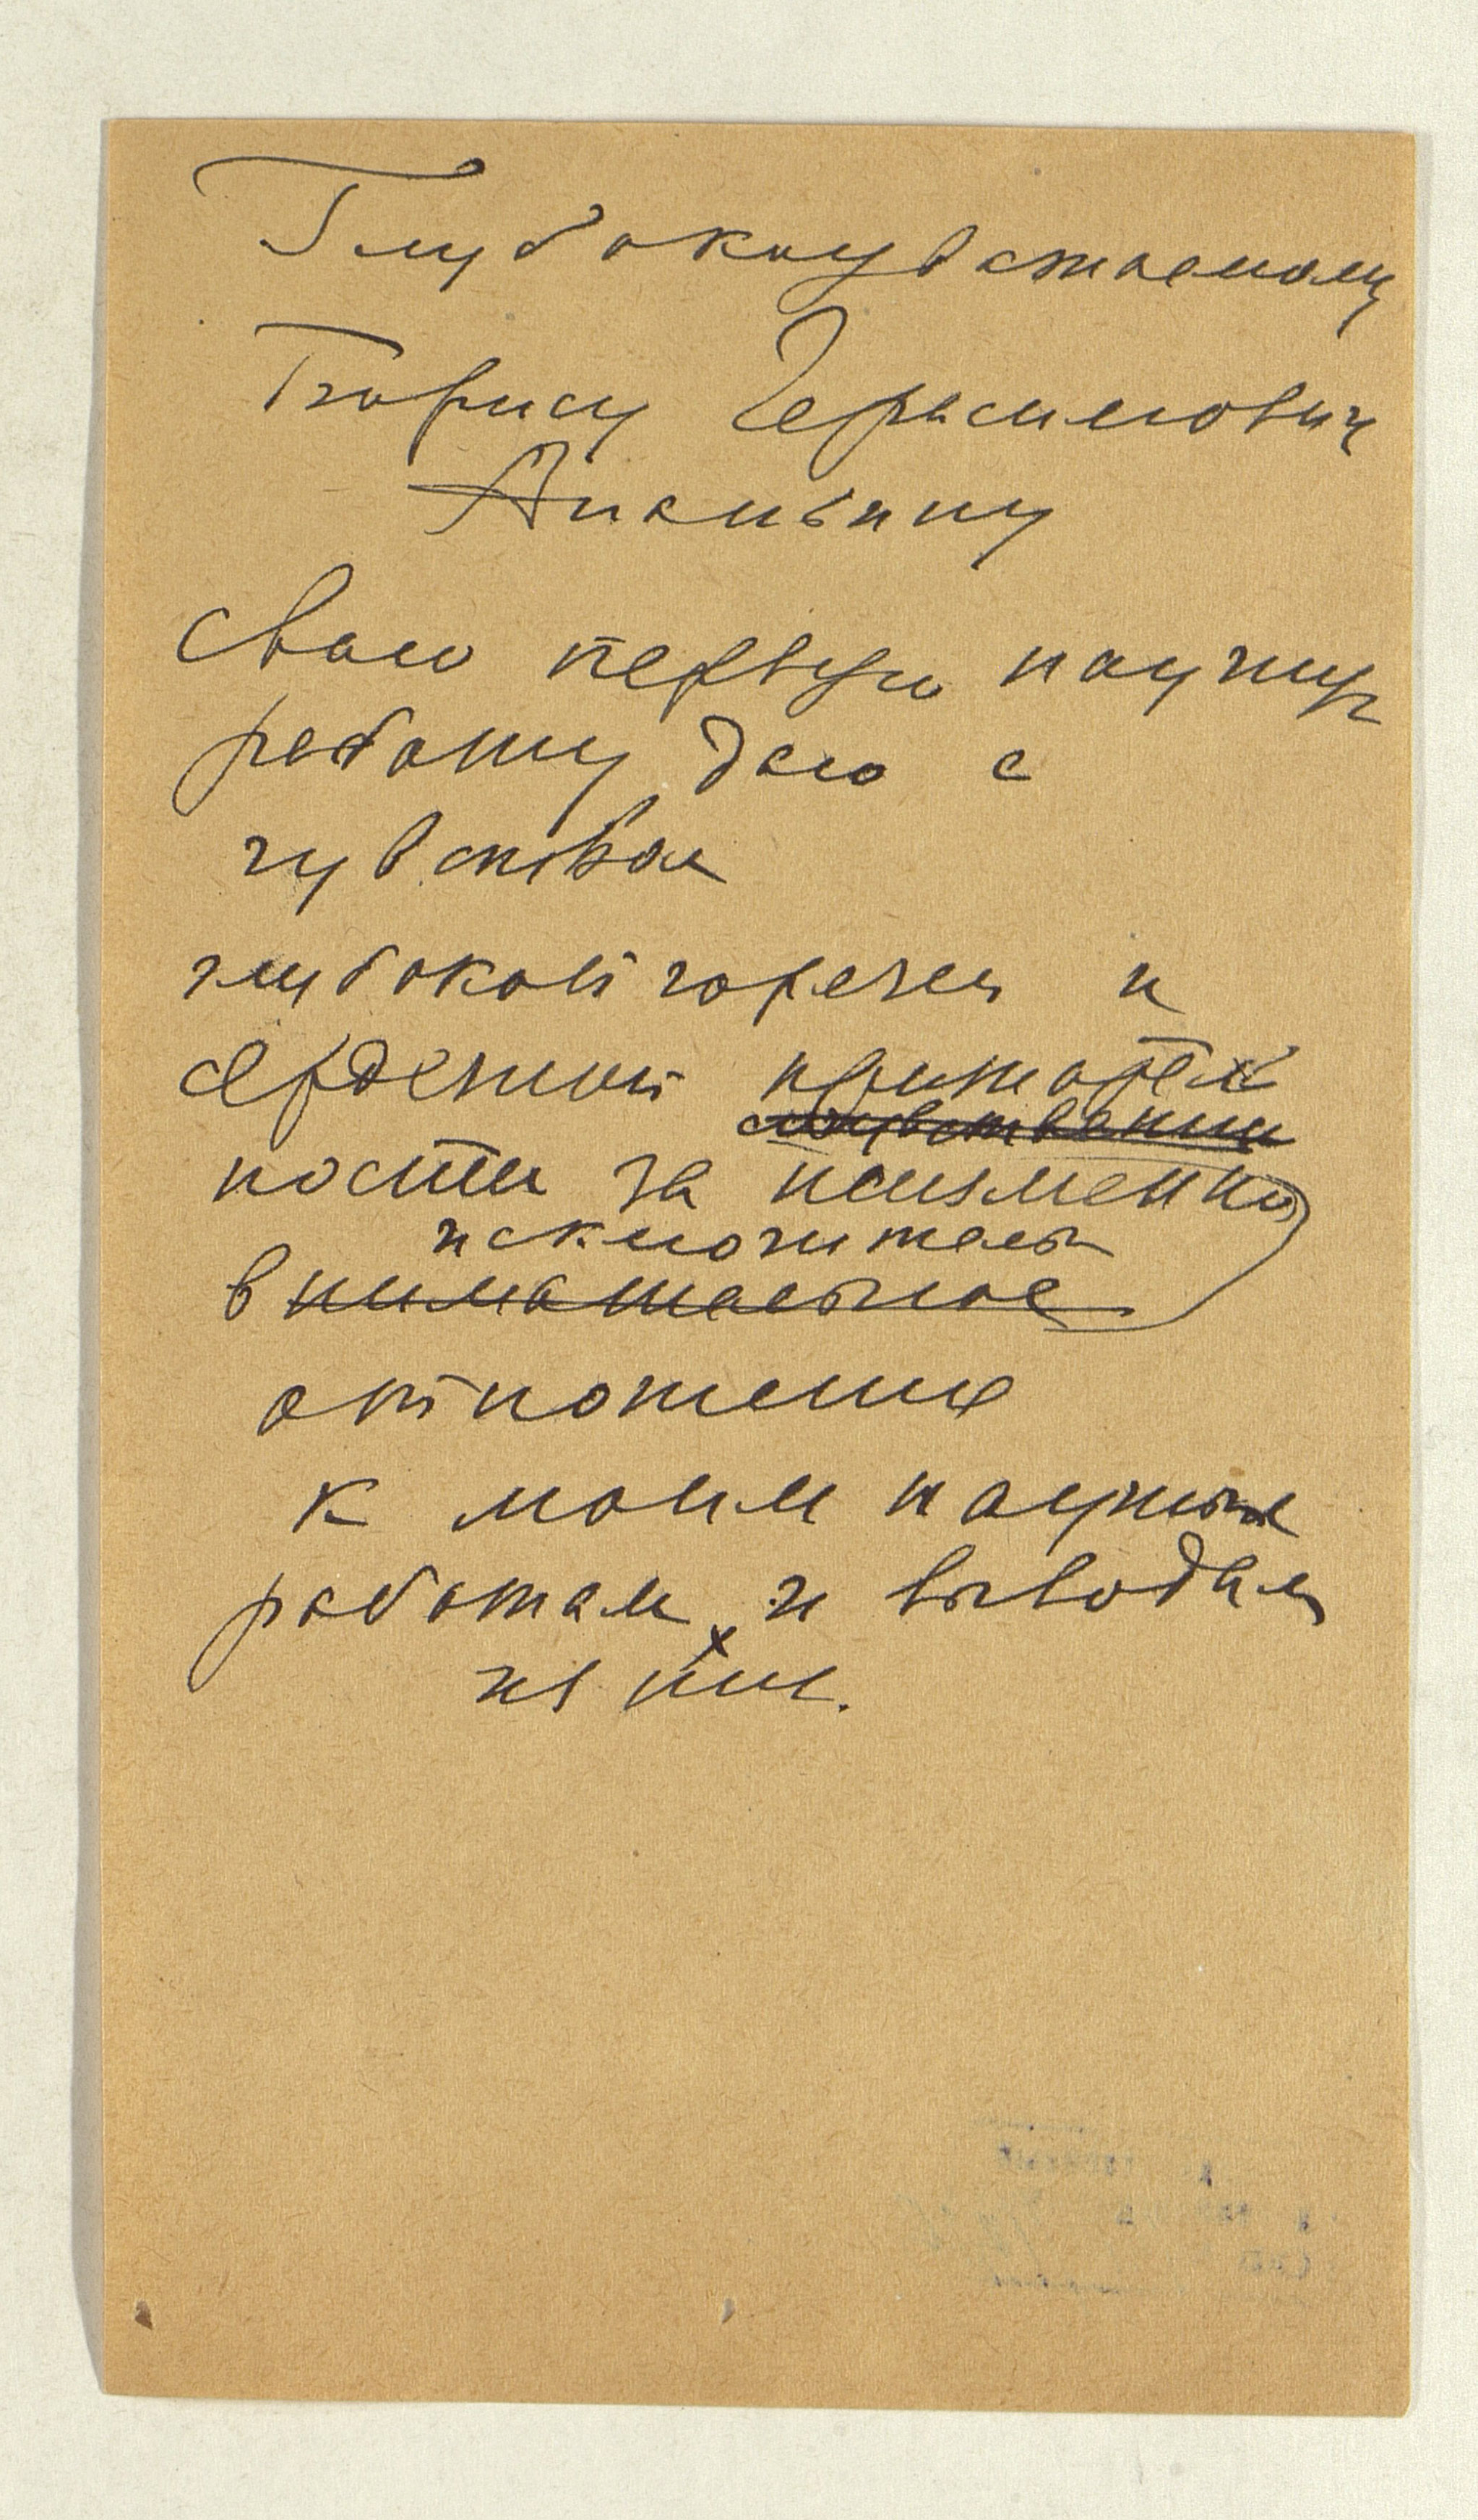 Глубокоуважаемому
Борису Герасимович
Ананьину
Свою первую научную
работу даю с
чувством
глубокой горечи и
сердечной приятель
ности за неизменно
исключитель
внимательное
отношение
к моим научным
работам и выводам
из них.